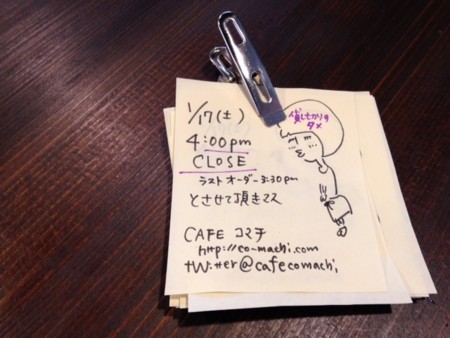 1/17(土)
4:00pm
CLOSE
ラストオーダー3:30pm
とさせて頂きマス
CAFE コマチ
http://co-machi.com
twitter@cafecomachi
貸しきりの
タメ